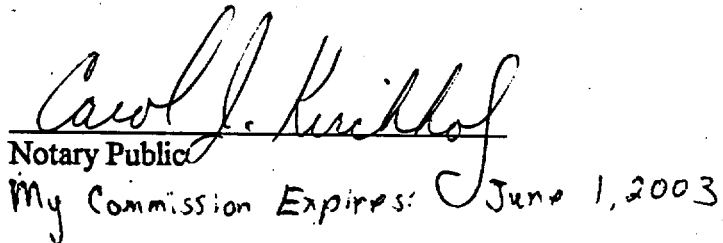 Carol J. Kirchhof
Notary Public
My Commission Expires: June 1, 2003